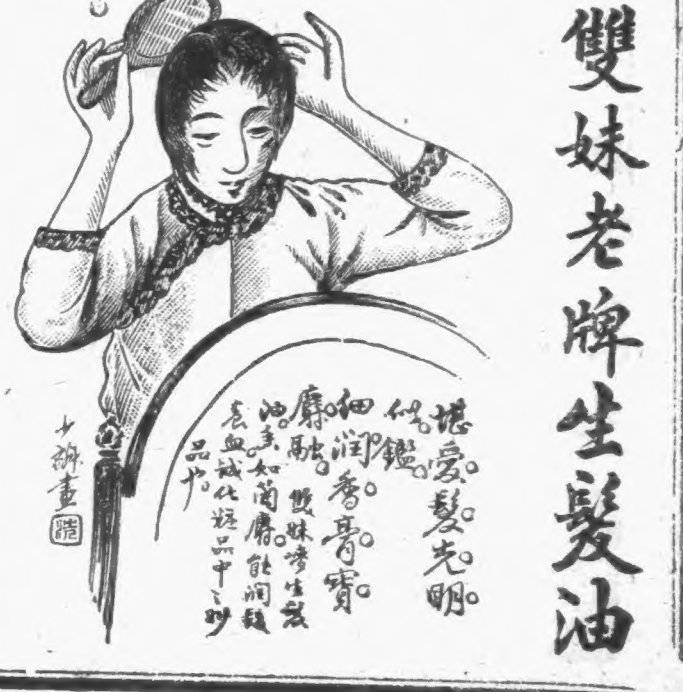 雙妹老牌生髮油
堪愛髮光明
似鑑
細潤香膏寶
麝融。雙妹嘜生髮
油。香如蘭麝。能潤髮
養血誠化粧品中之妙
品也。
少
畫